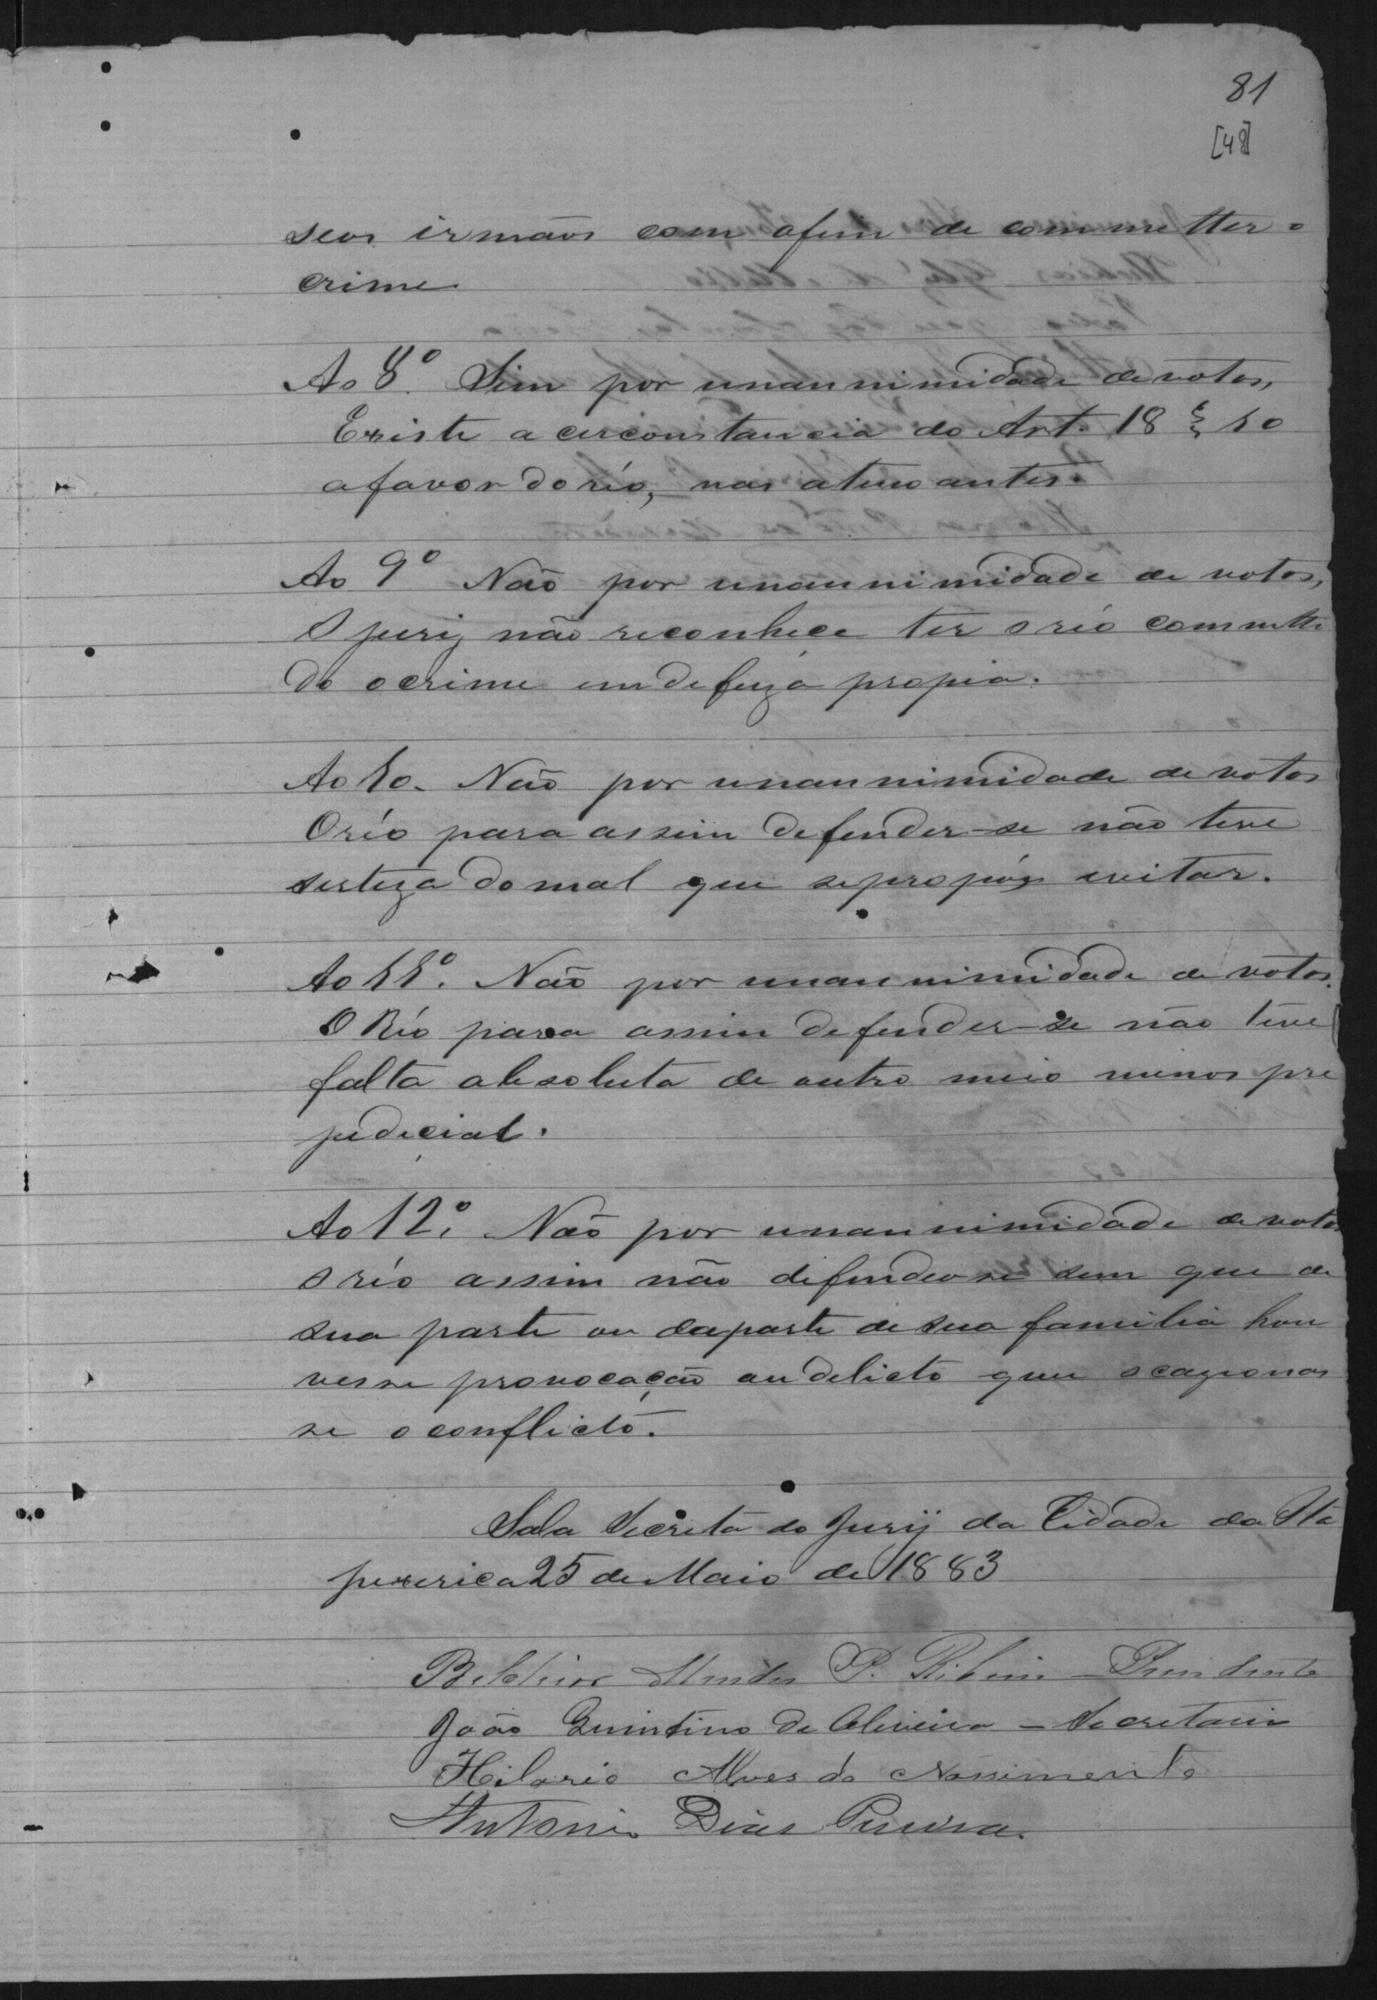 81
[48]
seos irmãos com ofim de commetter o
crime
Ao 8º. Sim por unannimidade de votos,
Existe a circonstancia do Art. 18 § 10
afavor do réo, nas atenoantes.
Ao 9º Não por unannimidade de votos,
O jurij não reconhece ter o réo commetti
do ocrime em defeza propia.
Ao 10. Não por unannimidade de votos
Oréo para assim defender-se não teve
serteza do mal que sepropôz evitar.
Ao 11º. Não por unannimidade de votos.
O Réo para assim defender-se não teve
falta absoluta de outro meio menos pre
judicial.
Ao 12º. Não por unannimidade de votos
O réo assim não defendeo-se sem que de
sua parte ou daparte de sua familia hou
vesse provocação ou delicto que ocazionas
se oconflicto.
Sala Secreta do Jurij da Cidade da Ita
pexerica 25 de Maio de 1883
Belchior Mendes P. Ribeiro – Presidente
João Quintino de Oliveira – Secretario
Hilario Alves do Nassimento
Antonio Dias Pereira.